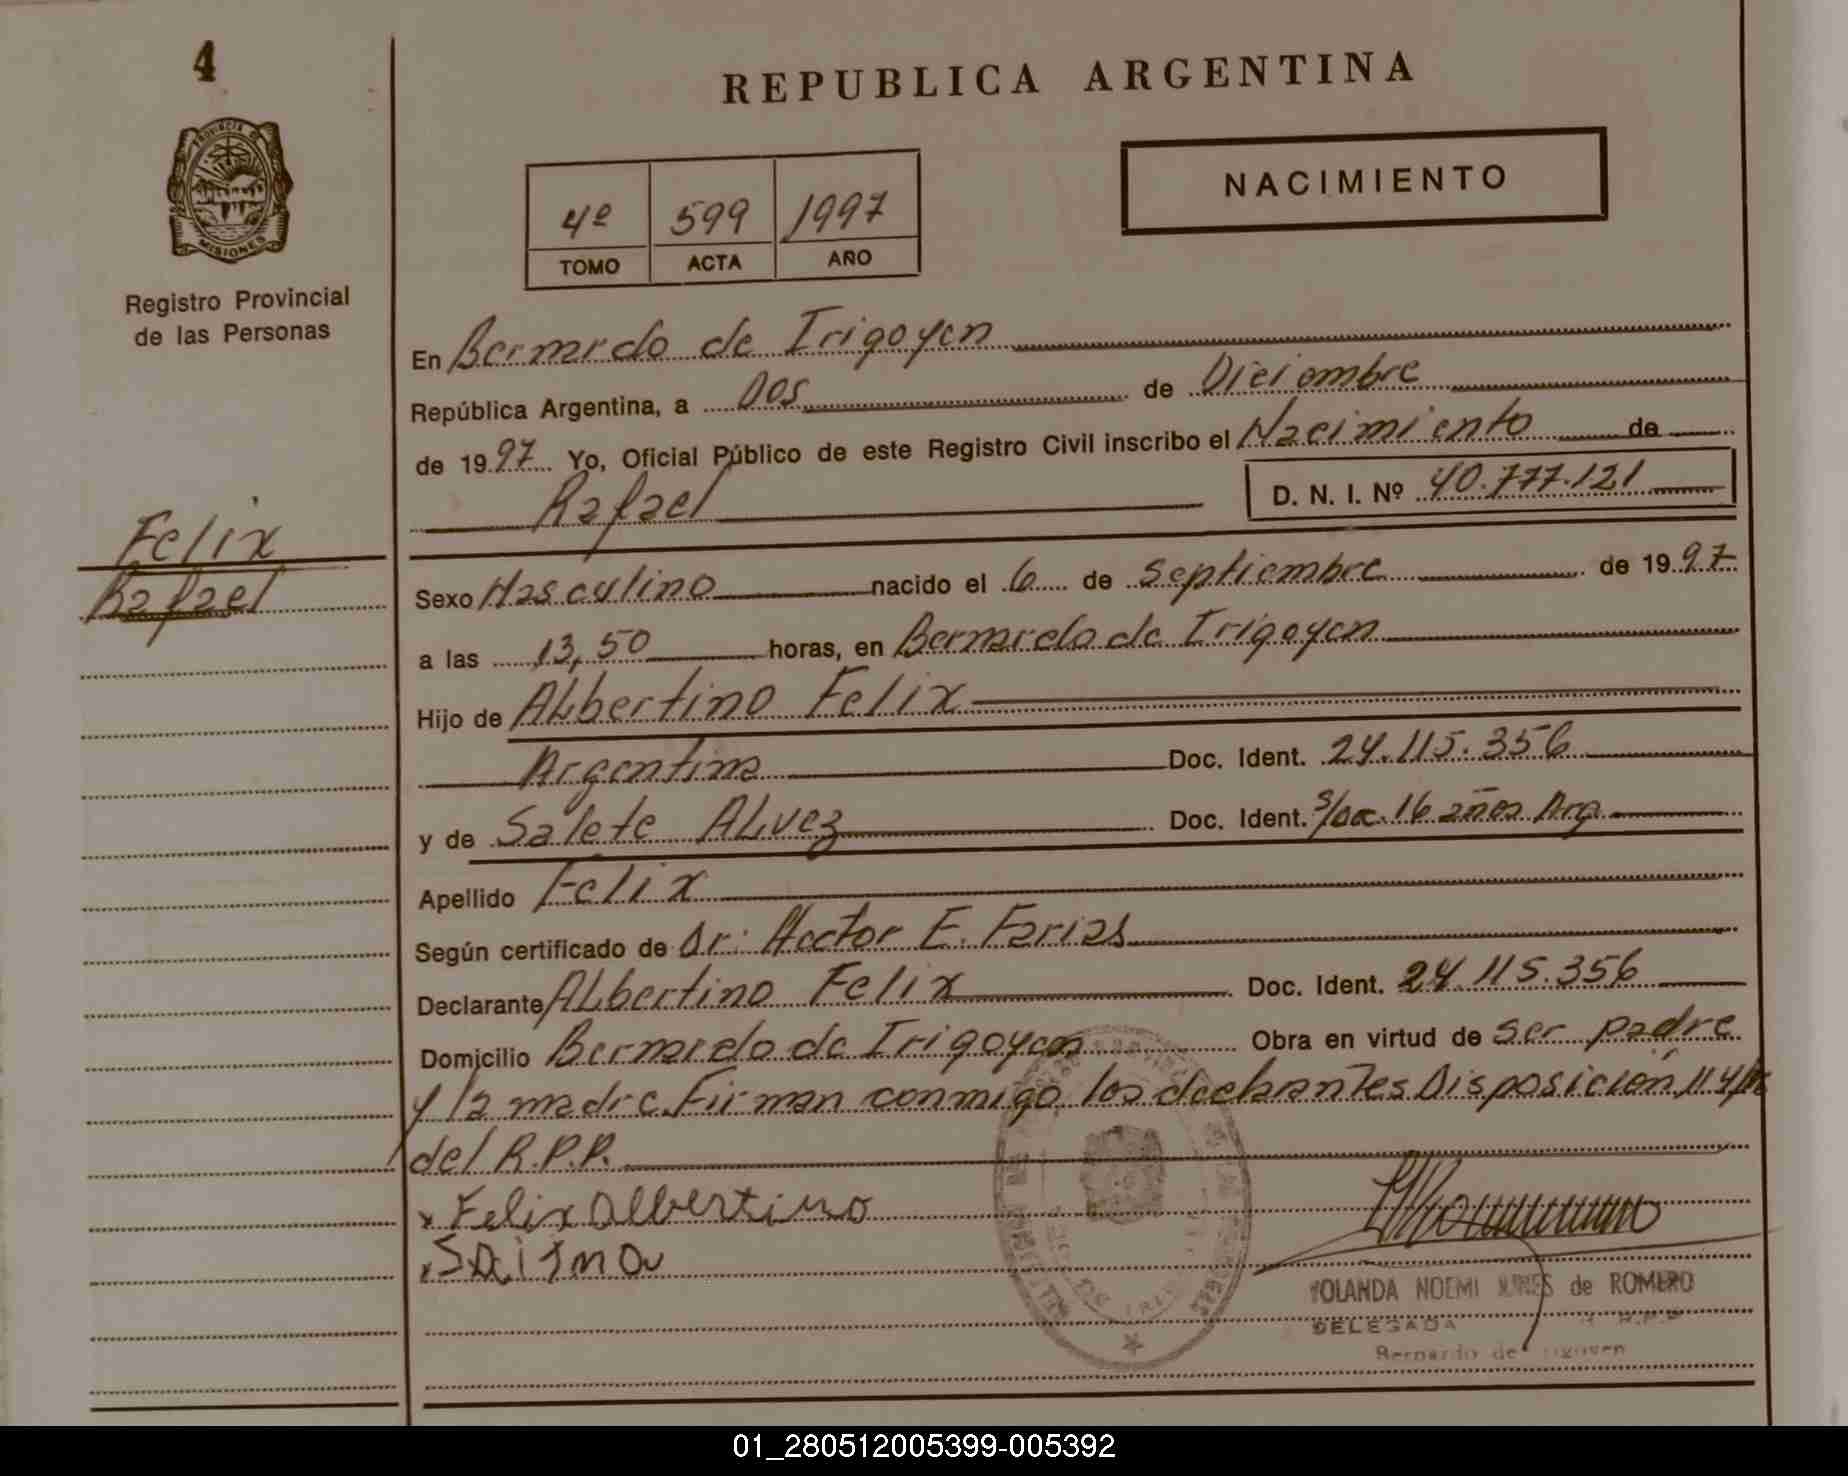 4
REPUBLICA ARGENTINA
PROVINCIA DE
MISIONES
NACIMIENTO
4º 599 1997
TOMO ACTA AÑO
Registro Provincial
de las Personas
En Bernardo de Irigoyen
República Argentina, a Dos de Diciembre
de 1997 Yo, Oficial Público de este Registro Civil inscribo el Nacimiento de
Rafael D. N. I. Nº 40.777.121
Felix
Rafael
Sexo Masculino nacido el 6 de Septiembre de 1997
a las 13,50 horas, en Bernardo de Irigoyen
Hijo de ALbertino Felix
Argentina Doc. Ident. 24.115.356
y de Salete ALvez Doc. Ident. s/doc. 16 años Arg.
Apellido Felix
Según certificado de Dr. Hector E. Farias
Declarante ALbertino Felix Doc. Ident. 24.115.356
Domicilio Bernardo de Irigoyen Obra en virtud de ser padre
y la madre. Firman conmigo los declarantes Disposición
del R.P.P.
x Felix Albertino
YOLANDA NOEMI de ROMERO
DELEGADA R.P.P
Bernardo de Irigoyen
01_280512005399-005392